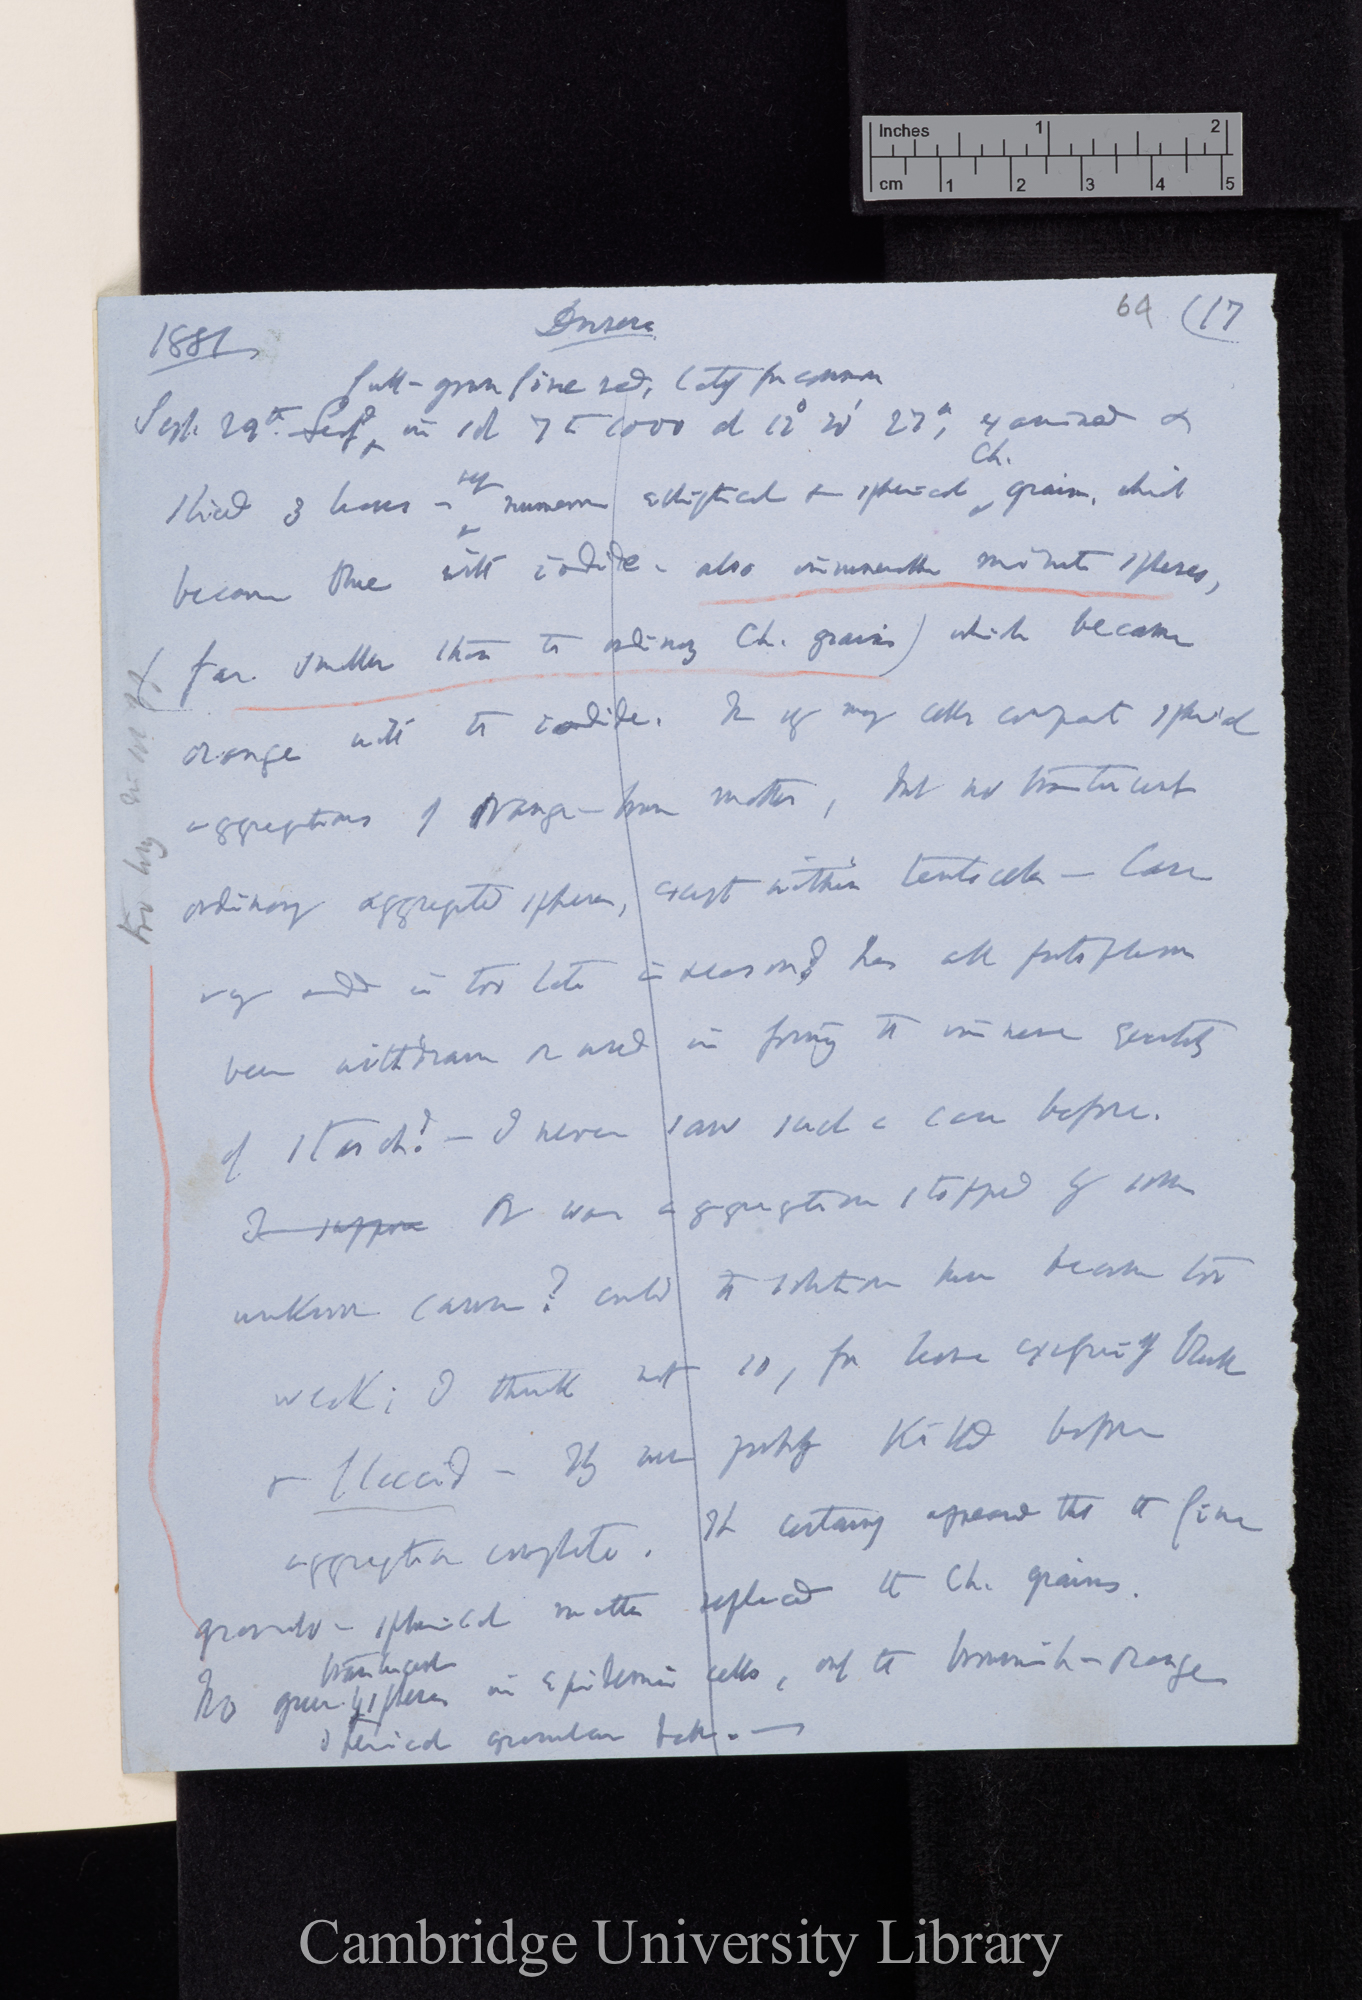 Inches 1 2
cm 1 2 3 4 5
64 (17
1881 Drosera
full-grown fine red,
Sept. 29th Leaf in sol 7 to 1000 at 12° 20' 27h, examined &
sliced 3 leaves – numerous elliptical & spherical Ch. grains, which
became blue with iodide – also innumerable minute spheres,
(far smaller than the ordinary Ch. grains) which became
orange with the iodide. In many cells compact spherical
aggregations of orange-brown matter, but no translucent
ordinary aggregated spheres, except within tentacles – Case
very odd is too late in season? has all protoplasm
been withdrawn or used in forming the immense quantity
of starch? – I never saw such a case before.
I suppose Or was aggregation stopped by some
unknown cause? could the solution have become too
weak; I think not so, for leaves black
& flaccid – They were probably killed before
aggregation complete. It certainly appeared that the fine
granulo-spherical matter replaced the Ch. grains.
No green translucent spheres in epidermic cells, only the brownish-orange
spherical granular balls. —
Cambridge University Library